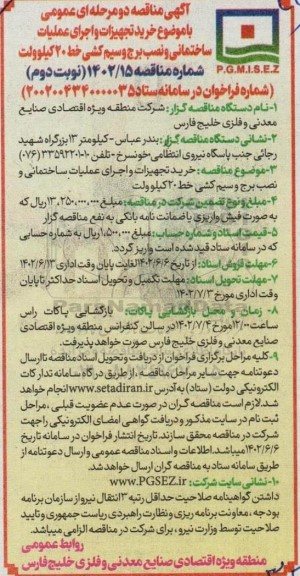 آگهی مناقصه دو مرحله ای عمومی
با موضوع خرید تجهیزات و اجرای عملیات
ساختمانی و نصب برج و سیم کشی خط ۲۰ کیلوولت
شماره مناقصه ۱۴۰۲/۱۵ (نوبت دوم)
(شماره فراخوان در سامانه ستاد ۲۰۰۲۰۰۴۳۴۰۰۰۰۰۳۵)
P.G.M.I.S.E.Z
۱- نام دستگاه مناقصه گزار: شرکت منطقه ویژه اقتصادی صنایع
معدنی و فلزی خلیج فارس
۲- نشانی دستگاه مناقصه گزار: بندر عباس - کیلومتر ۱۳ بزرگراه شهید
رجائی جنب پاسگاه نیروی انتظامی خونسرخ - تلفن ۱۰-۳۳۵۹۲۲۰۱ (۰۷۶)
۳- موضوع مناقصه: خرید تجهیزات و اجرای عملیات ساختمانی و
نصب برج و سیم کشی خط ۲۰ کیلوولت
۴- مبلغ و نوع تضمین شرکت در مناقصه: مبلغ ۱۳,۲۵۰,۰۰۰,۰۰۰ ریال که
به صورت فیش واریزی یا ضمانت نامه بانکی به نفع مناقصه گزار
۵- قیمت اسناد و شماره حساب: مبلغ ۱,۵۰۰,۰۰۰ ریال به شماره حسابی
که در سامانه ستاد قید شده است واریز گردد.
۶- مهلت فروش اسناد: از تاریخ ۱۴۰۲/۶/۶ لغایت پایان وقت اداری ۱۴۰۲/۶/۱۳
۷- مهلت تحویل اسناد: مهلت تکمیل و تحویل اسناد حداکثر تا پایان
وقت اداری مورخ ۱۴۰۲/۷/۳
۸- زمان و محل بازگشائی پاکات: بازگشایی پاکات راس
ساعت ۱۲/۰۰ مورخ ۱۴۰۲/۷/۴ در سالن کنفرانس منطقه ویژه اقتصادی
صنایع معدنی و فلزی خلیج فارس صورت خواهد پذیرفت.
۹- کلیه مراحل برگزاری فراخوان از دریافت و تحویل اسناد مناقصه تا ارسال
دعوتنامه جهت سایر مراحل مناقصه، از طریق درگاه سامانه تدارکات
الکترونیکی دولت (ستاد) به آدرس www.setadiran.ir انجام خواهد
شد. لازم است مناقصه گران در صورت عدم عضویت قبلی، مراحل
ثبت نام در سایت مذکور و دریافت گواهی امضای الکترونیکی را جهت
شرکت در مناقصه محقق سازند. تاریخ انتشار فراخوان در سامانه تاریخ
۱۴۰۲/۶/۶ میباشد. اطلاعات و اسناد مناقصه عمومی و ارسال دعوتنامه از
طریق سامانه ستاد به مناقصه گران ارسال خواهد شد.
۱۰- نشانی سایت شرکت: www.PGSEZ.ir
داشتن گواهینامه صلاحیت حداقل رتبه ۳ انتقال نیرو از سازمان برنامه
بودجه، معاونت برنامه ریزی و نظارت راهبردی ریاست جمهوری و تایید
صلاحیت توسط وزارت نیرو، برای شرکت در مناقصه الزامی میباشد.
روابط عمومی
منطقه ویژه اقتصادی صنایع معدنی و فلزی خلیج فارس